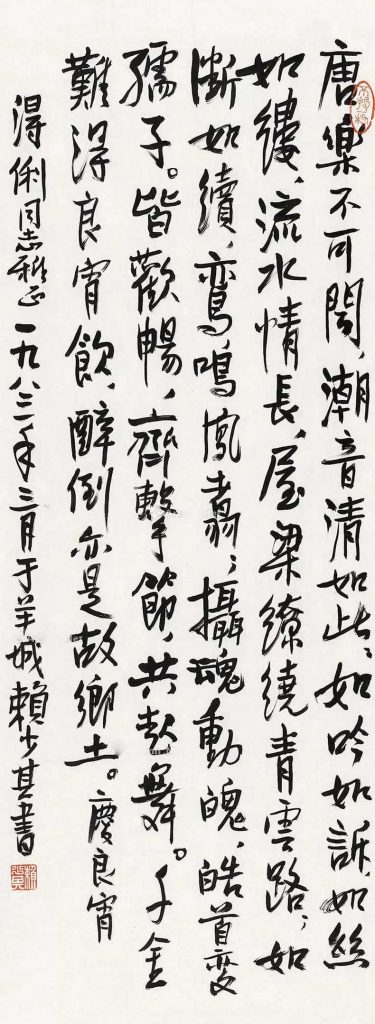 唐樂不可聞，潮音清如此，如吟如訴，如絲
如縷，流水情長，屋梁繚繞青雲路，如
斷如續，鸞鳴鳳翥，攝魂動魄，皓首變
孺子。皆歡暢，齊擊節，共起舞。千金
難得良宵飲，醉倒亦是故鄉土。慶良宵
得俐同志雅正一九八三年三月于羊城賴少其書